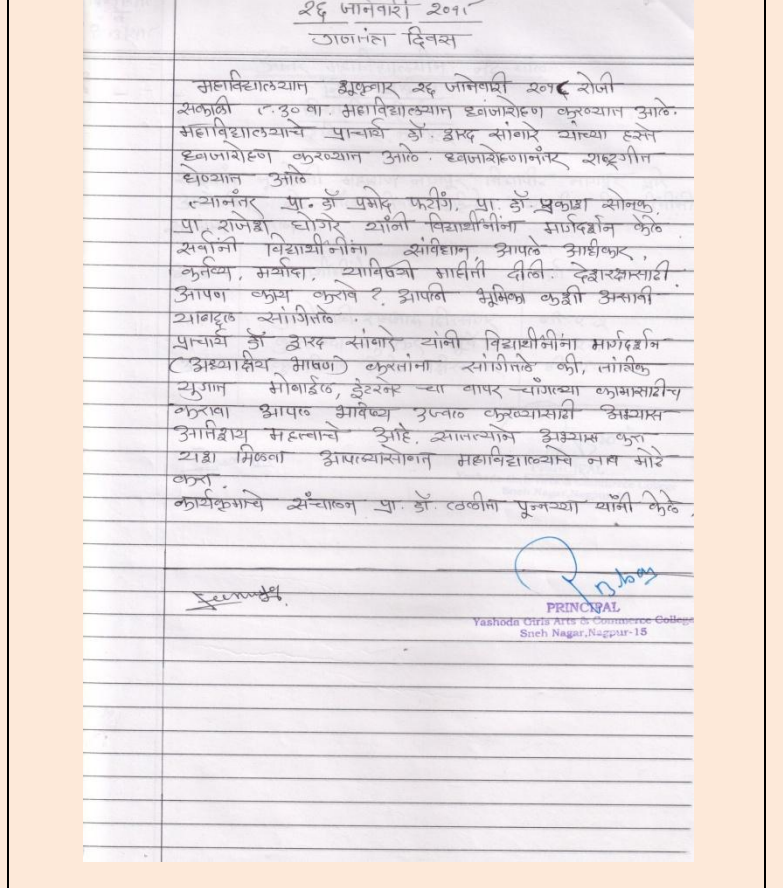 २६ जानेवारी २०१८
गणतंत्र दिवस
महाविद्यालयात शुक्रवार २६ जानेवारी २०१८ रोजी
सकाळी ८.३० वा. महाविद्यालयात ध्वजारोहण करण्यात आले.
महाविद्यालयाचे प्राचार्य डॉ. शरद सांबारे यांच्या हस्ते
ध्वजारोहण करण्यात आले. ध्वजारोहणानंतर राष्ट्रगीत
घेण्यात आले
त्यानंतर प्रा. डॉ प्रमोद फटींग, प्रा. डॉ. प्रकाश सोनक,
प्रा. राजेश घोगरे यांनी विद्यार्थीनींना मार्गदर्शन केले
सर्वांनी विद्यार्थीनींना संविधान, आपले अधीकार,
कर्तव्य, मर्यादा, याविषयी माहीती दीली. देशरक्षासाठी
आपण काय करावे? आपली भूमिका कशी असावी
याबद्दल सांगितले.
प्राचार्य डॉ शरद सांबारे यांनी विद्यार्थीनींना मार्गदर्शन
(अध्यक्षीय भाषण) करतांना सांगितले की, तांत्रिक
युगात मोबाईल, इंटरनेट चा वापर चांगल्या कामासाठीच
करावा आपल भविष्य उज्वल करण्यासाठी अभ्यास
अतिशय महत्वाचे आहे. सातत्याने अभ्यास करा
यश मिळवा आपल्यासोबत महाविद्यालयाचे नाव मोठे
करा.
कार्यक्रमाचे संचालन प्रा. डॉ. ललीता पून्नय्या यांनी केले.
PRINCIPAL
Yashoda Girls Arts & Commerce College
Sneh Nagar, Nagpur-15